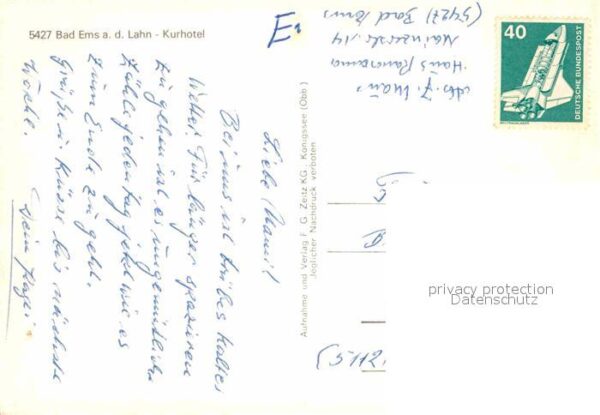 5427 Bad Ems a. d. Lahn - Kurhotel
Liebe Mausi!
Bei uns ist trübes kaltes
Wetter. Für länger spazieren
zu gehen ist es ungemütlich.
Zähle jeden Tag jetzt wie es
zum Ende zu geht.
Grüße u. Küsse bis nächste
Woche.
Dein
Aufnahme und Verlag F. G. Zeitz KG., Königssee (Obb)
Jeglicher Nachdruck verboten
Abs. J.
Haus Panorama
Mainzerstr. 14
(5427) Bad Ems
40
DEUTSCHE BUNDESPOST
(5112
privacy protection
Datenschutz